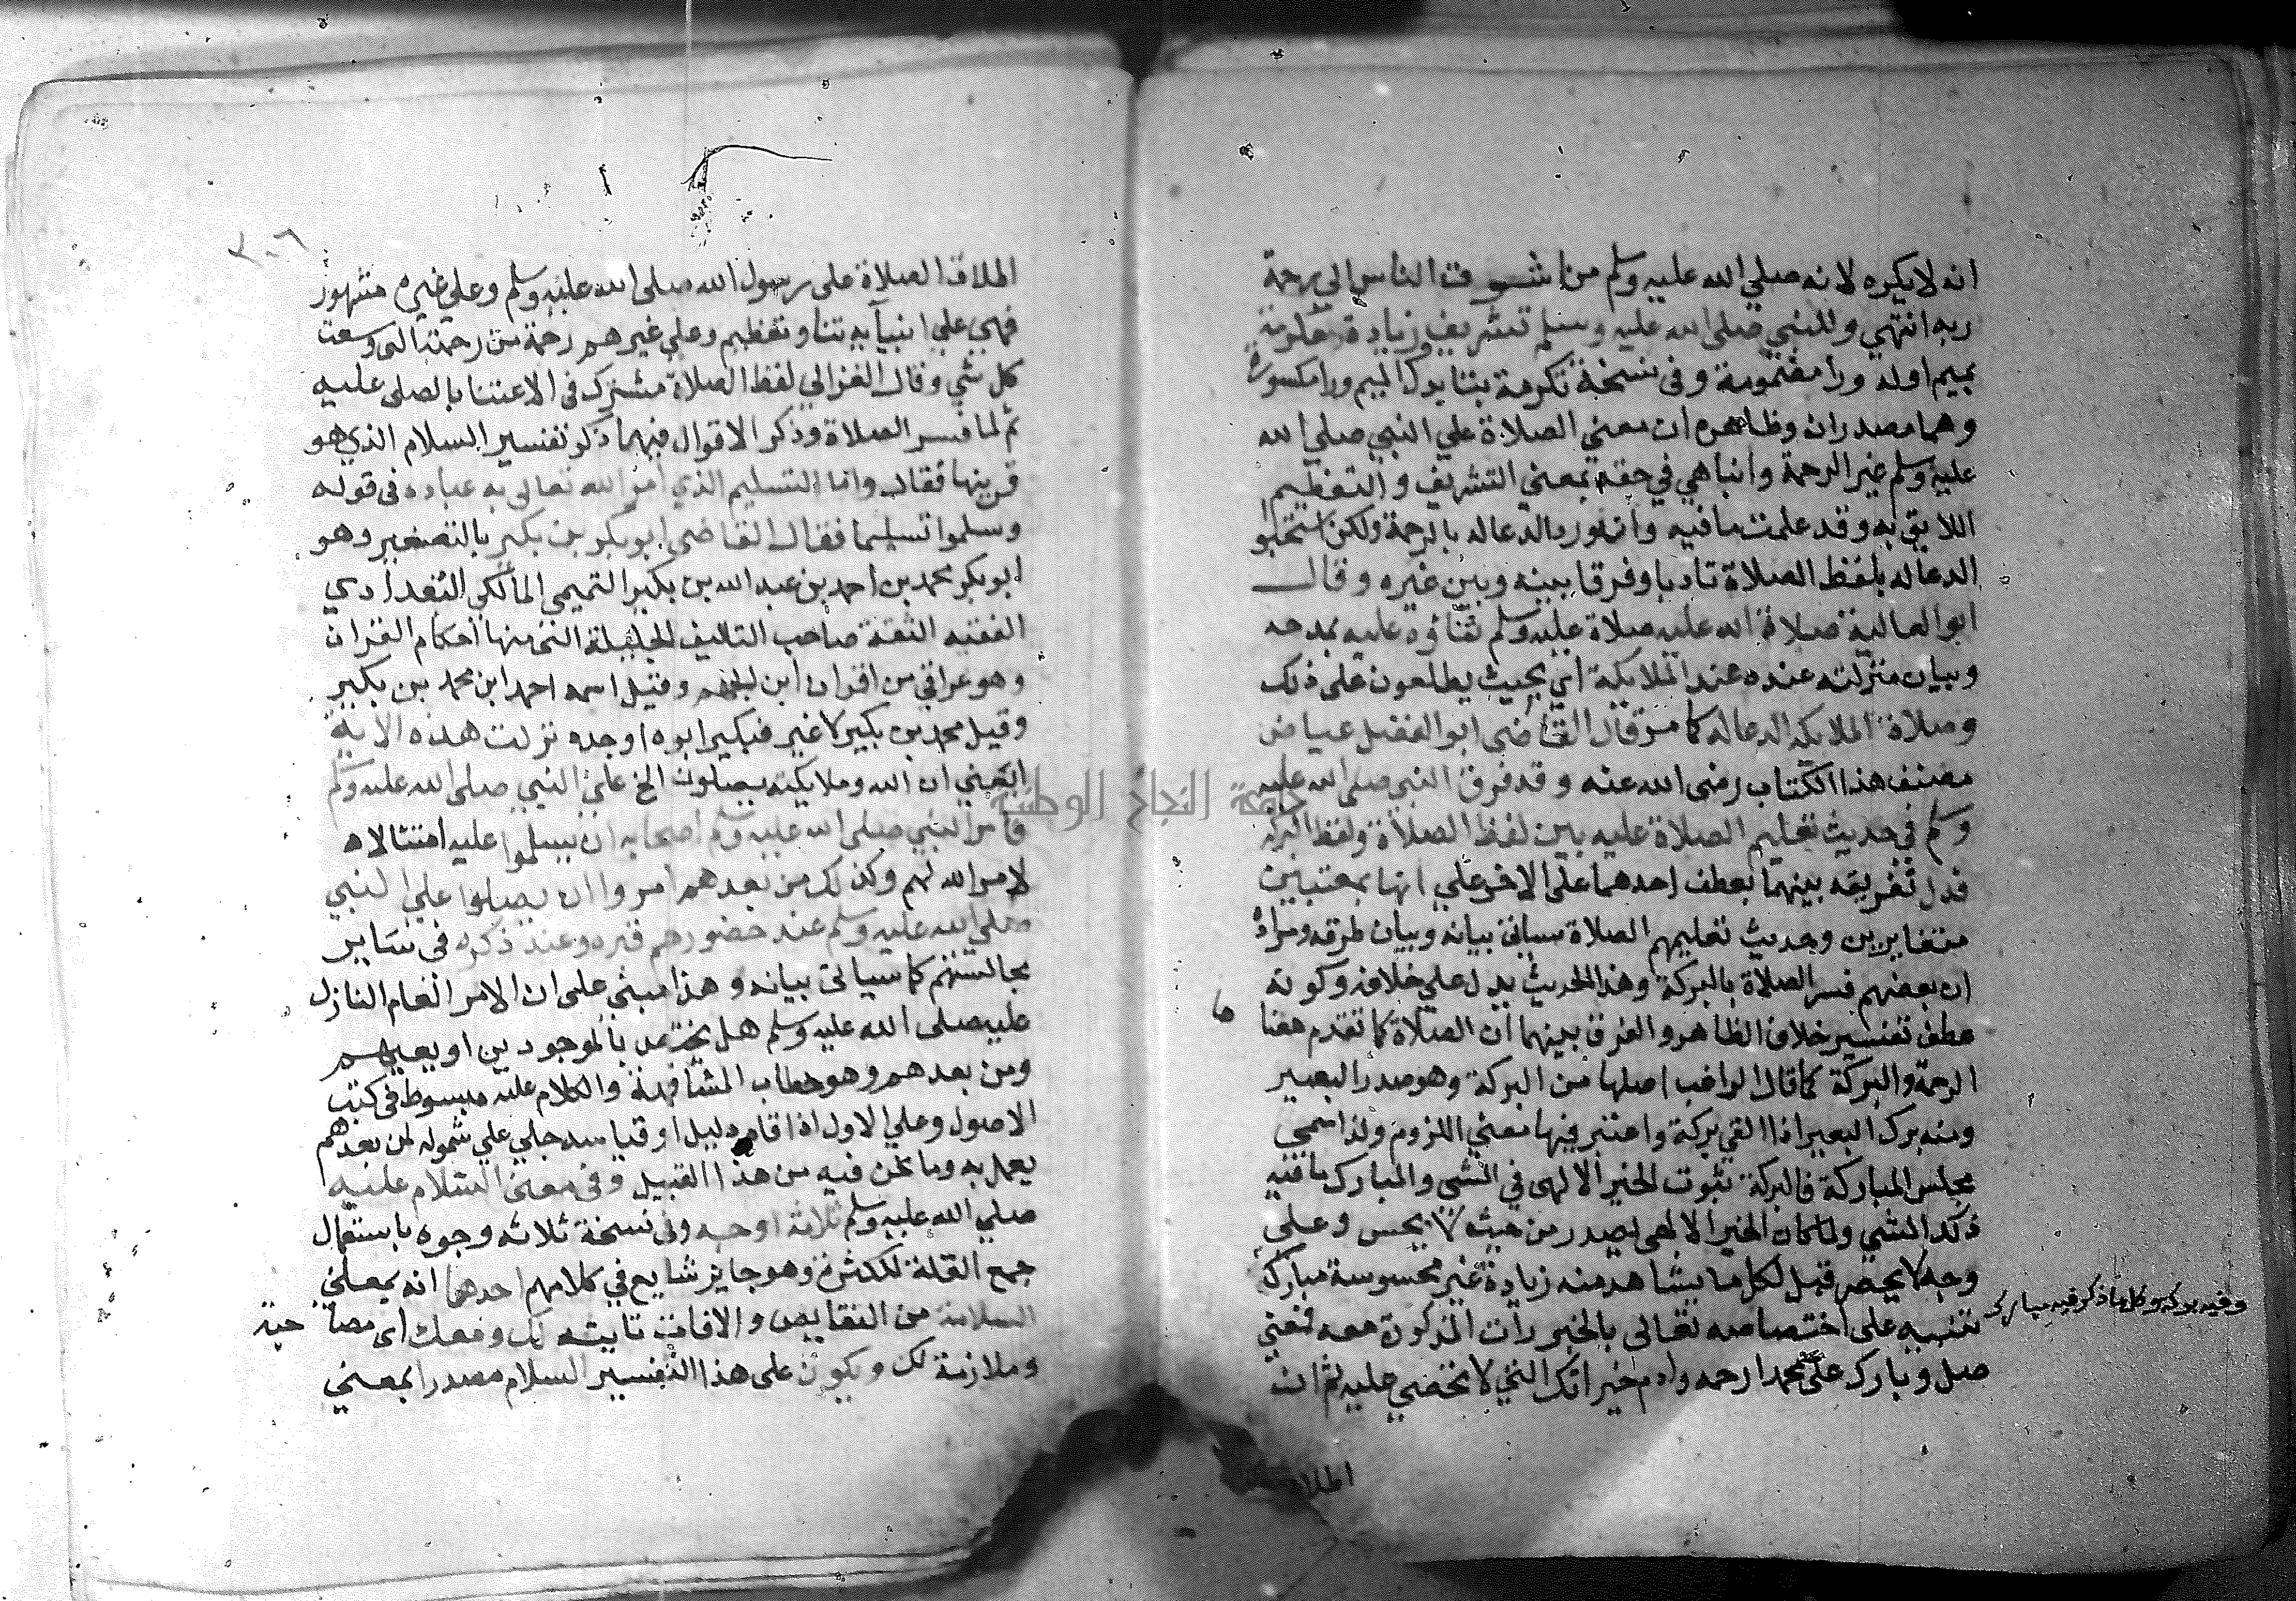 انه لا يكره لانه صلي الله عليه وسلم من اشوف الناس الي رحمة
ربه انتهي وللنبي صلى الله عليه وسلم تشريف وزيادة مكرمة
بميم اوله ورا مضمومة وفي نسخة تكرمة بتا بدل الميم ورا مكسورة
وهما مصدران وظاهره ان معني الصلاة علي النبي صلي الله
عليه وسلم غير الرحمة وانما هي في حقه بمعني التشريف والتعظيم
اللايق به وقد علمت ما فيه وانه ورد الدعا له بالرحمة ولكن استحبو
الدعا له بلفظ الصلاة تادبا وفرقا بينه وبين غيره وقال
ابو العالية صلاة الله عليه صلاة عليه وسلم ثناؤه عليه بمدحه
وبيان منزلته عنده عند الملايكة اي بحيث يطلعون على ذلك
وصلاة الملايكه الدعا له كما مر قال القاضي ابو الفضل عياض
مصنف هذا الكتاب رضى الله عنه وقد فرق النبي صلى الله عليه
وسلم في حديث تعليم الصلاة عليه بين لفظ الصلاة ولفظ البركة
فدل تفريقه بينهما بعطف احدهما على الاخر علي انها بمعنيين
متغايرين وحديث تعليمهم الصلاة سياتي بيانه وبيان طرقه ومراده
ان بعضهم فسر الصلاة بالبركة وهذا الحديث يدل علي خلافه وكونه
عطف تفسير خلاف الظاهر والفرق بينهما ان الصلاة كما تقدم معنا ها
الرحمة والبركة كما قال الراغب اصلها من البركة وهو صدر البعير
ومنه برك البعير اذا القي بركة واعتبر فيها معني اللزوم ولذا سمي
مجلس المباركة فالبركة ثبوت الخير الالهي في الشي والمبارك ما فيه
ذلك الشي ولما كان الخير الالهي يصدر من حيث لا يحس وعلى
وجه لا يحصر قيل لكل ما يشاهد منه زيادة غير محسوسة مبارك
وفيه بركه وكلما ذكر فيه مبارك
تنبيه على اختصاصه تعالى بالخيرات المذكورة معه فمعني
صل وبارك علي محمد ارحمه وادم خيراتك التي لا تحصي عليه ثم ان
اطلاق
٢٠٦
اطلاق الصلاة على رسول الله صلى الله عليه وسلم وعلي غيره مشهور
فهي علي انبيآيه ثنا وتعظيم وعلي غيرهم رحمة من رحمته التى وسعت
كل شي وقال الغزالي لفظ الصلاة مشترك في الاعتنا بالمصلى عليه
ثم لما فسر الصلاة وذكر الاقوال فيهما ذكر تفسير السلام الذي هو
قرينها فقال واما التسليم الذي امر الله تعالى به عباده فى قوله
وسلموا تسليما فقال القاضى ابو بكر بن بكير بالتصغير وهو
ابو بكر محمد بن احمد بن عبد الله بن بكير التميمي المالكي البغدادي
الفقيه الثقة صاحب التاليف الجليلة التي منها احكام القران
وهو عراقي من اقران ابن وقيل اسمه احمد ابن محمد بن بكير
وقيل محمد بن بكير لا غير فبكير ابوه او جده نزلت هذه الاية
يعني ان الله وملايكته يصلون الخ علي النبي صلى الله عليه وسلم
فامر النبي صلى الله عليه وسلم اصحابه ان يسلموا عليه امتثالا
لامر الله لهم وكذلك من بعدهم امروا ان يصلوا علي النبي
صلي الله عليه وسلم عند حضورهم قبره وعند ذكره في ساير
مجالستهم كما سياتي بيانه وهذا مبني علي ان الامر العام النازل
عليه صلى الله عليه وسلم هل يختص بالموجودين او يعمهم
ومن بعدهم وهو خطاب المشافهة والكلام عليه مبسوط فى كتب
الاصول وعلي الاول اذا قام دليل او قياس جلي علي شموله لمن بعدهم
يعمل به وما نحن فيه من هذا القبيل وفي معنى السلام عليه
صلي الله عليه وسلم ثلاثة اوجه وفى نسخة ثلاثه وجوه باستعمال
جمع القلة للكثرة وهو جايز شايع في كلامهم احدها انه بمعني
السلامة من النقايص والافات ثابته لك ومعك اى مصاحبة
وملازمة لك ويكون على هذا التفسير السلام مصدرا بمعني
جامعة النجاح الوطنية